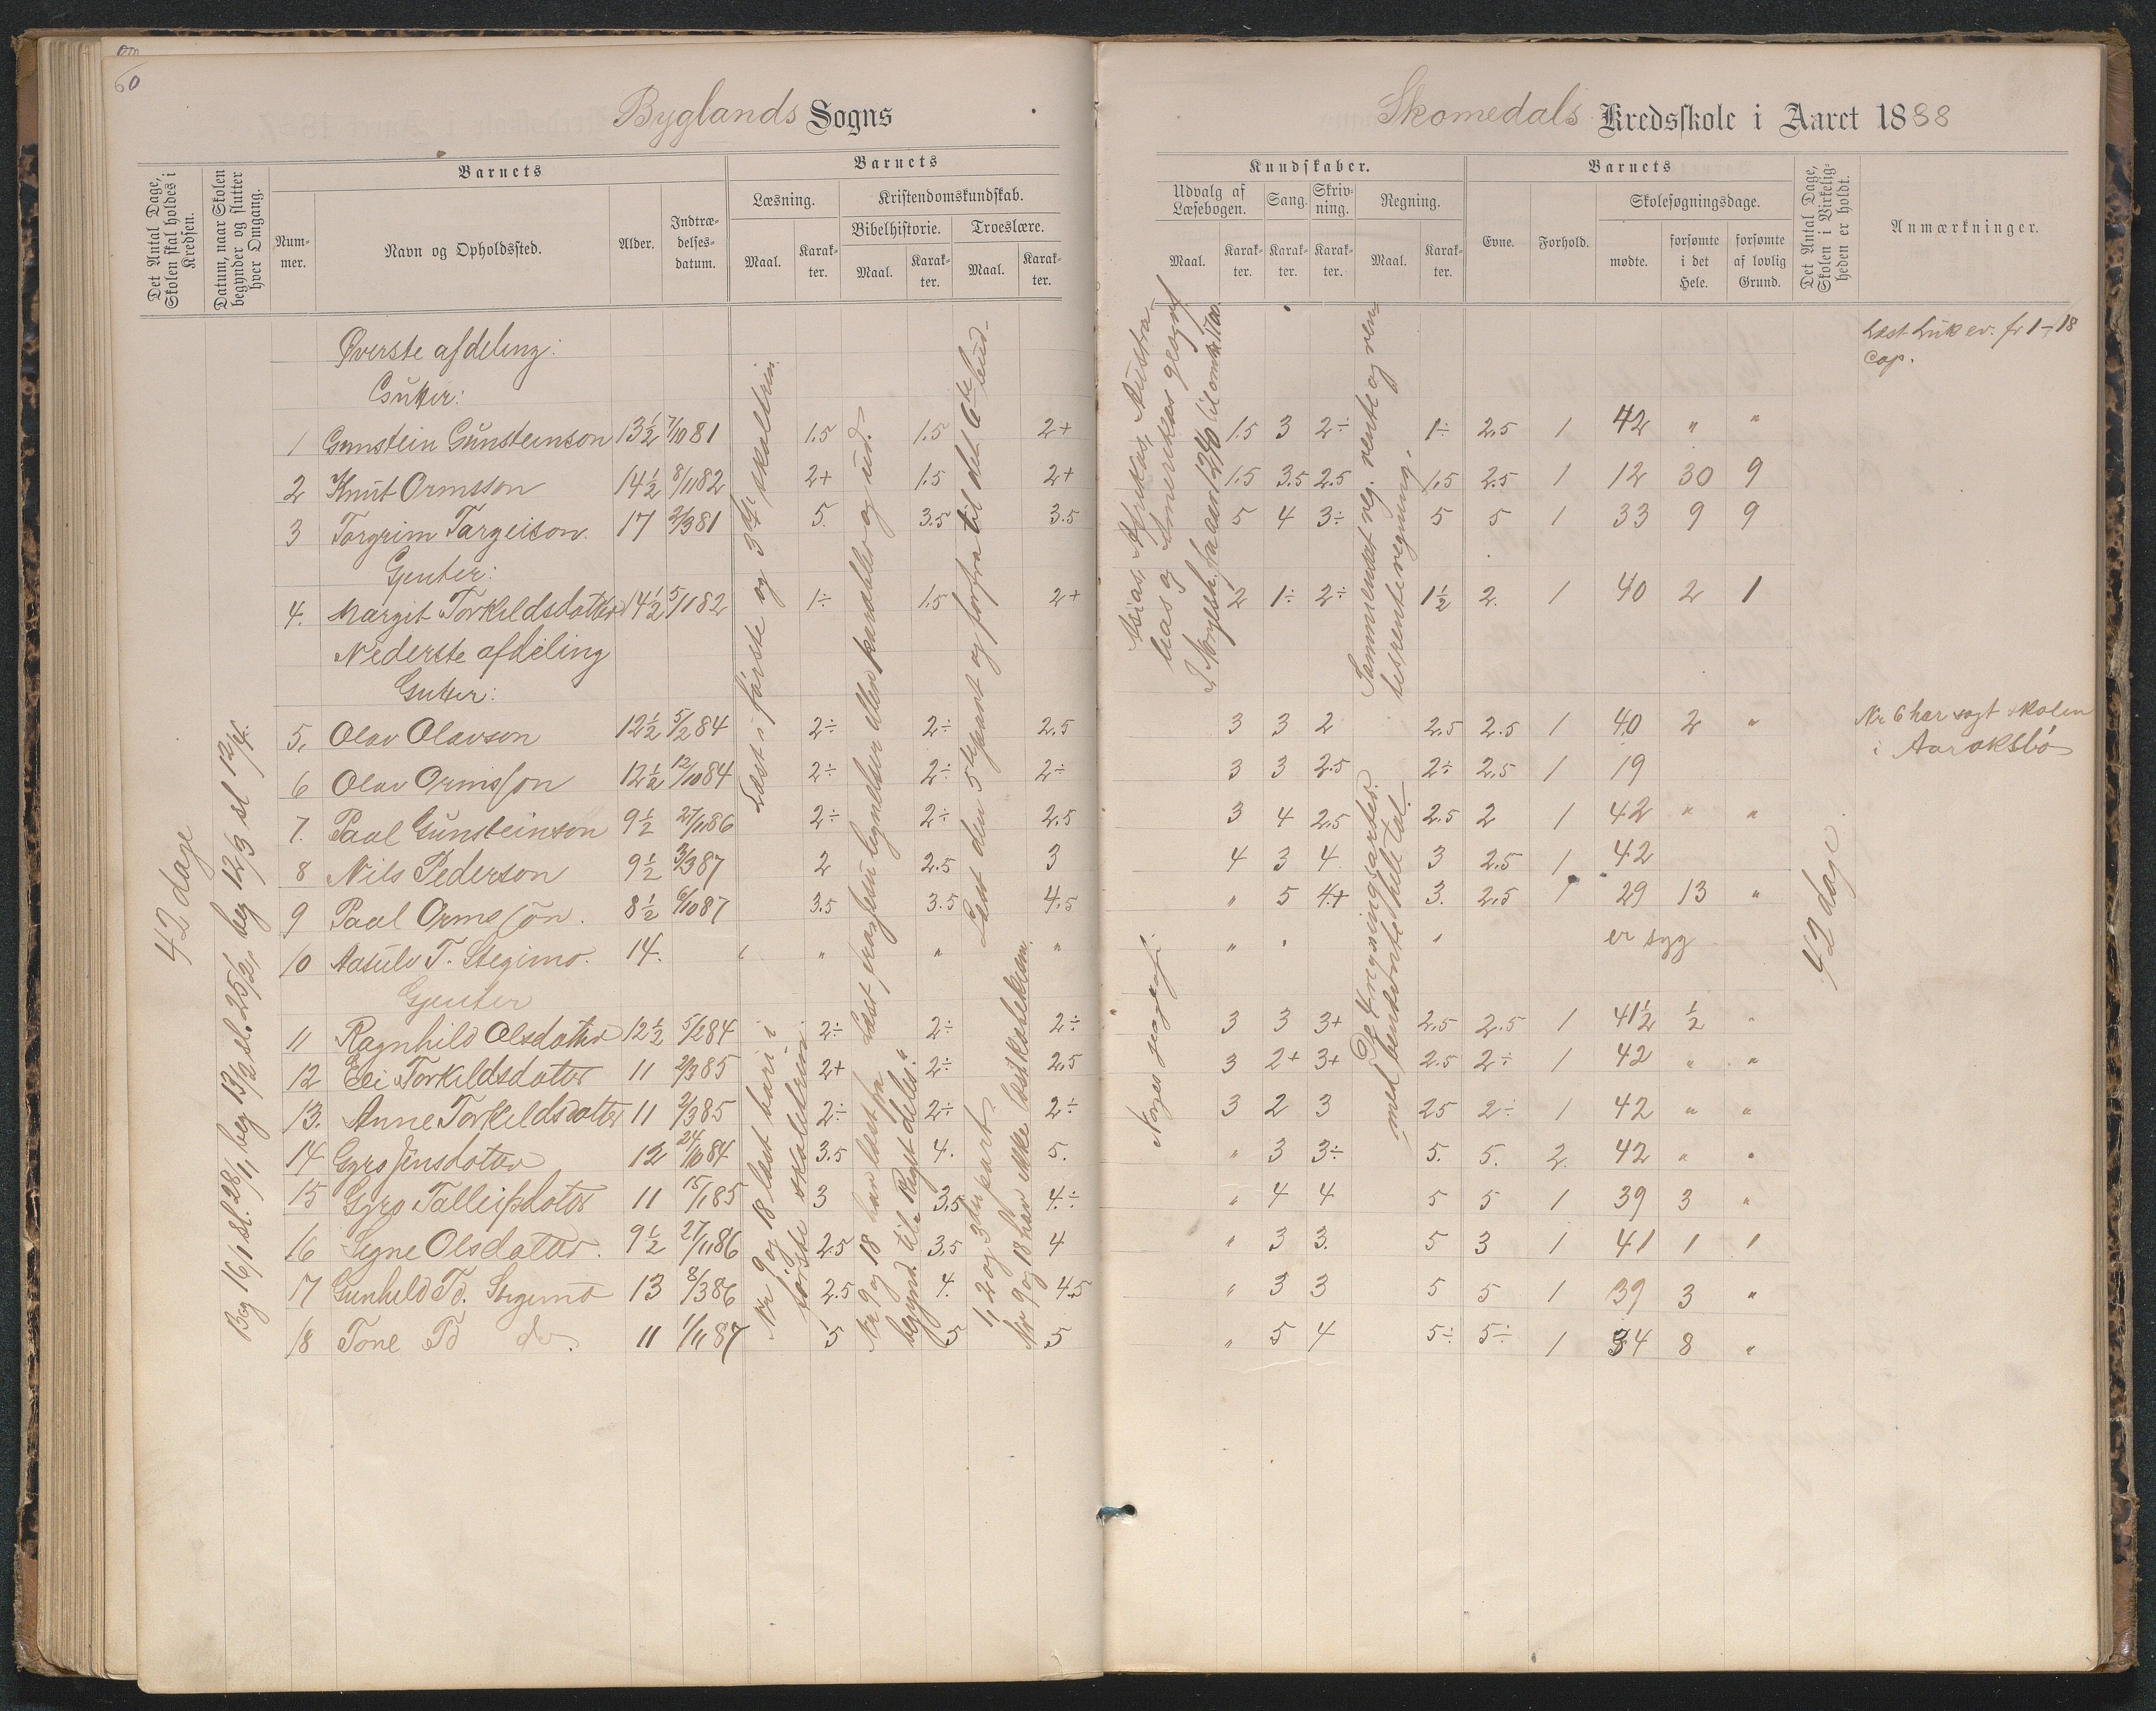 60
Byglands Sogns
Det Antal Dage, Skolen skal holdes i Kredsen.
Datum, naar Skolen begynder og slutter hver Omgang.
Barnets
Nummer.
Navn og Opholdssted.
Alder.
Indtrædelsesdatum.
Barnets
Læsning.
Kristendomskundskab.
Bibelhistorie.
Troeslære.
Maal.
Karakter.
Maal.
Karakter.
Maal.
Karakter.
42 dage
Beg 16/1 sl. 28/1, beg 13/2 sl. 25/2, beg 12/3 sl 12/4.
Øverste afdeling:
Gutter:
1 Gunstein Gunsteinson 13½ 7/10 81 1.5 1.5 2+
2 Knut Ormsson 14½ 8/11 82 2+ 1.5 2+
3 Torgrim Targeison. 17 2/3 81 5. 3.5 3.5
Gjenter:
4. Margit Torkildsdatter 14½ 5/1 82 1÷ 1.5 2+
Nederste afdeling
Gutter:
5. Olav Olavson 12½ 5/2 84 2÷ 2÷ 2.5
6 Olav Ormsson 12½ 12/10 84 2÷ 2÷ 2÷
7. Paal Gunsteinson 9½ 27/11 86 2÷ 2÷ 2.5
8 Nils Pederson 9½ 3/3 87 2 2.5 3
9 Paal Ormssøn. 8½ 6/10 87 3.5 3.5 4.5
10 Aasulv T. Stegimo. 14. " " "
Gjenter
11 Ragnhild Olsdatter 12½ 5/2 84 2÷ 2÷ 2÷
12 Eli Torkildsdatter 11 2/3 85 2+ 2÷ 2.5
13. Anne Torkildsdatter 11 2/3 85 2÷ 2÷ 2÷
14 Gyro Jensdatter 12 24/10 84 3.5 4. 5.
15 Gyro Talleifsdatter 11 15/1 85 3 3.5 4÷
16 Signe Olsdatter. 9½ 27/11 86 2.5 3.5 4
17 Gunhild Td. Stegimo 13 8/3 86 2.5 4. 4.5
18 Tone Td do. 11 1/11 87 5 5 5
Læst i første og 3die skoletrin.
Nr 9 og 18 læst bare i første skoletrin
Læst fra Jesu begyndelse eller parabler og ud.
Nr 9 og 18 har læst fra begynd. til Riget deles.
Læst den 5te part og forfra til det 6te bud
1, 2 og 3die part.
Nr 9 og 18 har ikke læst katekism.
Skomedals Kredsskole i Aaret 1888
Kundskaber.
Udvalg af Læsebogen.
Sang.
Skrivning.
Regning.
Maal.
Karakter.
Karakter.
Karakter.
Maal.
Karakter.
Barnets
Evne.
Forhold.
Skolesøgningsdage.
mødte.
forsømte i det Hele.
forsømte af lovlig Grund.
Det Antal Dage, Skolen i Virkeligheden er holdt.
Anmærkninger.
Asias, Afrikas, Australias og Amerikas geografi
I Norgesh. fra aar 1240 til omkr.
Norges geografi.
Sammensat reg. rente og rentesrenteregning.
De 4 regningsarter med benævnte hele tal.
1.5 3 2÷ 1÷ 2.5 1 42 " "
1.5 3.5 2.5 1.5 2.5 1 12 30 9
5 4 3÷ 5 5 1 33 9 9
2 1÷ 2÷ 1½ 2. 1 40 2 1
3 3 2 2.5 2.5 1 40 2 "
3 3 2.5 2÷ 2.5 1 19
3 4 2.5 2.5 2 1 42 " "
4 3 4 3 2.5 1 42
" 5 4+ 3. 2.5 1 29 13 "
" " " er syg
3 3 3+ 2.5 2.5 1 41½ ½ "
3 2+ 3+ 2.5 2÷ 1 42 " "
3 2 3 25 2÷ 1 42 " "
" 3 3÷ 5. 5. 2. 42 " "
" 4 4 5 5 1 39 3 "
" 3 3. 5 3 1 41 1 1
" 3 3 5 5 1 39 3 "
" 5 4 5÷ 5÷ 1 34 8 "
42 dage
Læst Luk ev. fr 1–18
Cap.
Nr 6 har søgt skolen
i Aaraksbø